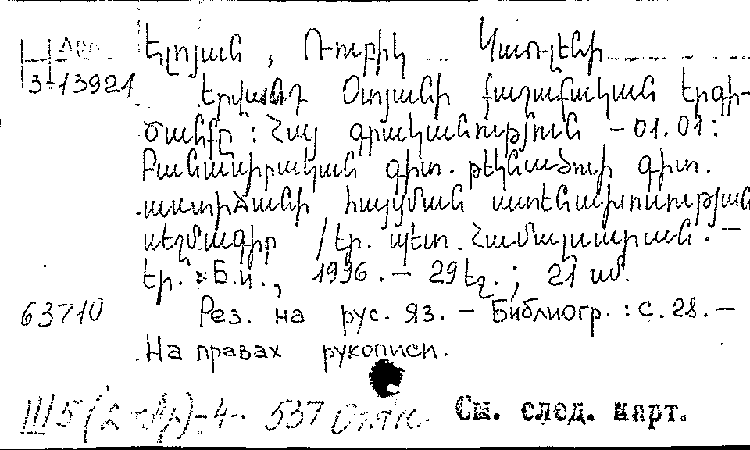 Էլոյան, Ռուբիկ Կառլենի
3-13921
Երվանդ Օտյանի քաղաքական երգի-
ծանքը : Հայ գրականություն - 01.01:
Բանասիրական գիտ. թեկնածուի գիտ.
աստիճանի հայցման ատենախոսության
սեղմագիր / Եր. պետ. Համալսարան. -
Եր. : Б.и., 1996. - 29 էջ. ; 21 սմ.
63710 Рез. на рус. яз. - Библиогр. : с. 28. -
На правах рукописи.
III 5 (2-Ар)-4. 537 См. след. карт.